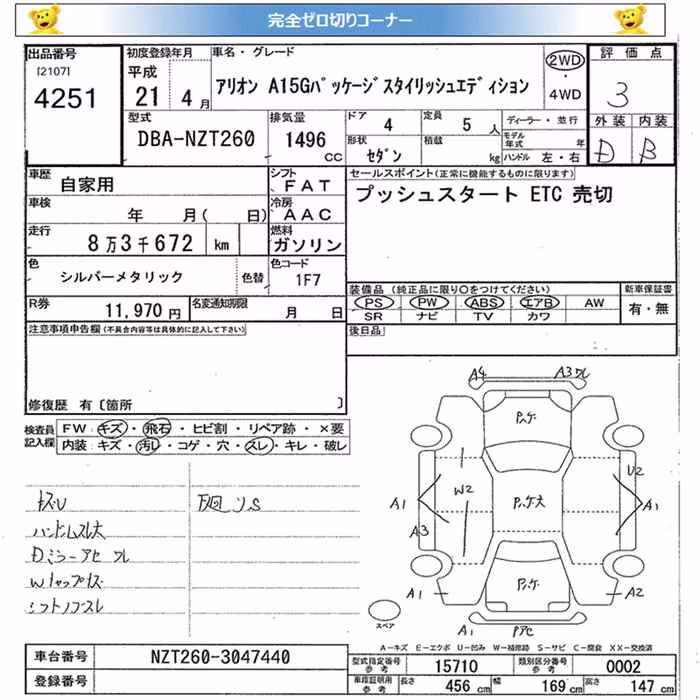 完全ゼロ切りコーナー
出品番号
[2107]
4251
初度登録年月
平成
21年 4月
車名・グレード
アリオン A15Gパッケージスタイリッシュエディション
2WD
・
4WD
評価点
3
外装 内装
D B
型式
DBA-NZT260
排気量
1496
CC
ドア
4
定員
5人
形状
セダン
積載
kg
ディーラー・並行
モデル年式 年
ハンドル 左・右
車歴
自家用
シフト
FAT
車検
年 月( 日)
冷房
AAC
走行
8万3千672 km
燃料
ガソリン
色
シルバーメタリック
色替
色コード
1F7
R券
11,970円
名変通知期限
月 日
セールスポイント(正常に機能するものに限ります)
プッシュスタート ETC 売切
装備品(純正品に限り○をつけてください)
新車保証書
PS PW ABS エアB AW
SR ナビ TV カワ
有・無
後日品
注意事項申告欄(不具合内容等は具体的に記入して下さい)
修復歴 有〔箇所 〕
検査員記入欄
FW:キズ・飛石・ヒビ割・リペア跡・×要
内装:キズ・汚レ・コゲ・穴・スレ・キレ・破レ
ハンドルスレ大
Dミラーアセ
シフトノブスレ
A4
A3
P.ヶヶ
W2
U2
A1
A1
A3
A1
A2
A1
スペア
A-キズ E-エクボ U-凹み W-補修跡 S-サビ C-腐食 XX-交換済
車台番号
NZT260-3047440
登録番号
型式指定番号
参考
15710
類別区分番号
参考
0002
車庫証明用
参考
長さ 456 cm
幅 169 cm
高さ 147 cm